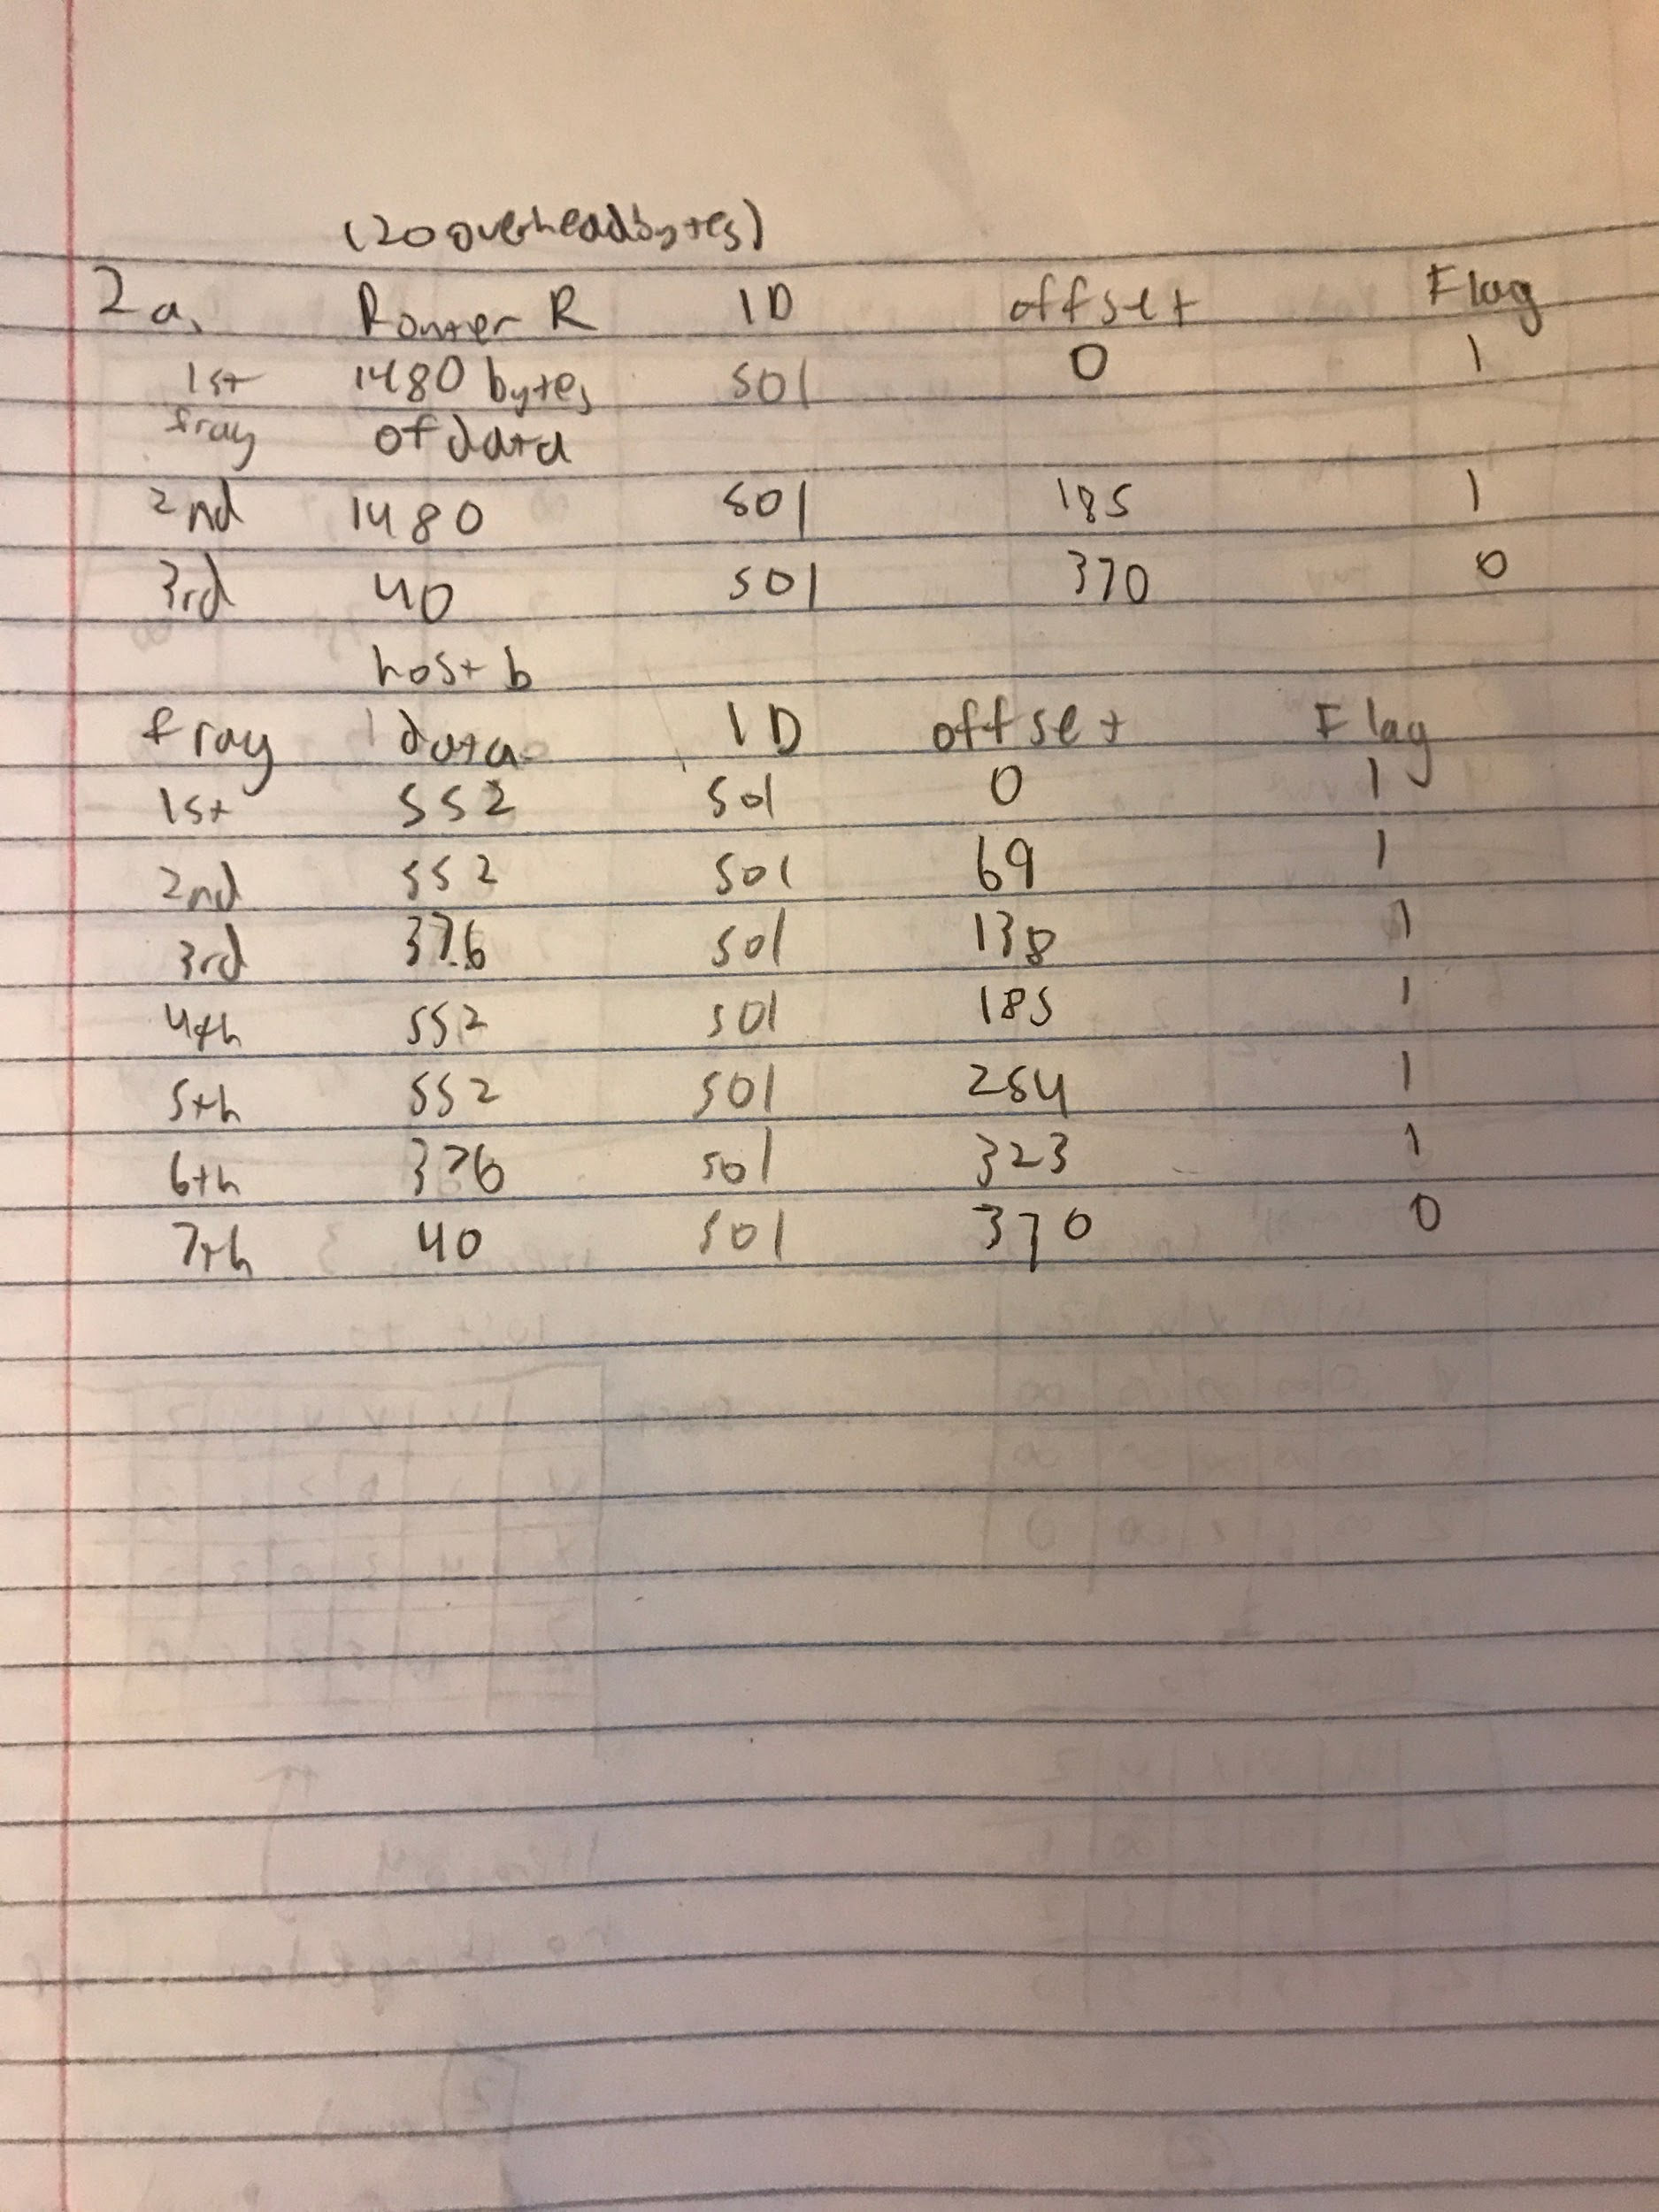 (20 overhead bytes)
2a. Router R ID offset Flag
1st 1480 bytes 501 0 1
frag of data
2nd 1480 501 185 1
3rd 40 501 370 0
host b
frag data ID offset Flag
1st 552 501 0 1
2nd 552 501 69 1
3rd 376 501 138 1
4th 552 501 185 1
5th 552 501 254 1
6th 376 501 323 1
7th 40 501 370 0